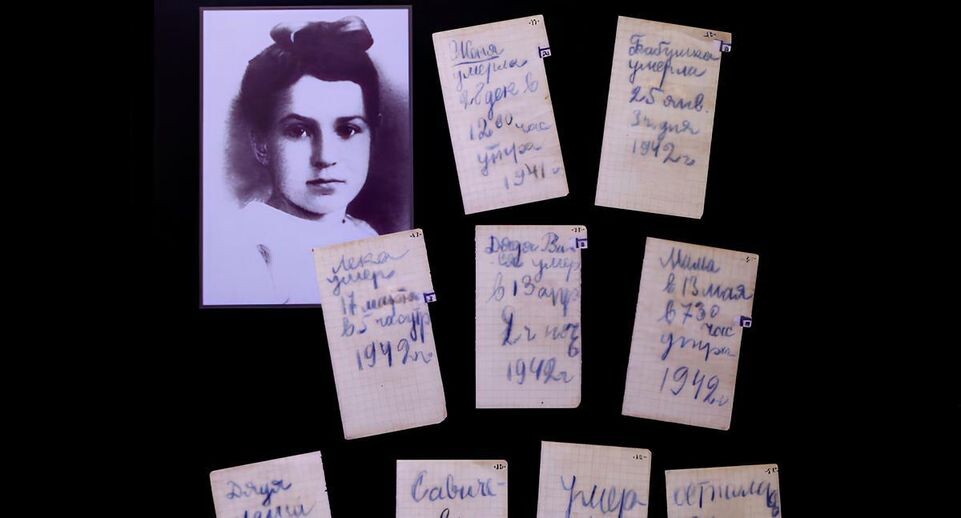 Женя
умерла
28 дек в
12 00 час
утра
1941 г
Бабушка
умерла
25 янв.
3 ч дня
1942 г
Лека
умер
17 марта
в 5 час утр
1942 г.
Дядя Ва
ся умер
в 13 апр
2 ч ноч
1942 г
Мама
в 13 мая
в 7 30
час
утра
1942 г
Дядя
Савиче-
Умер
осталась